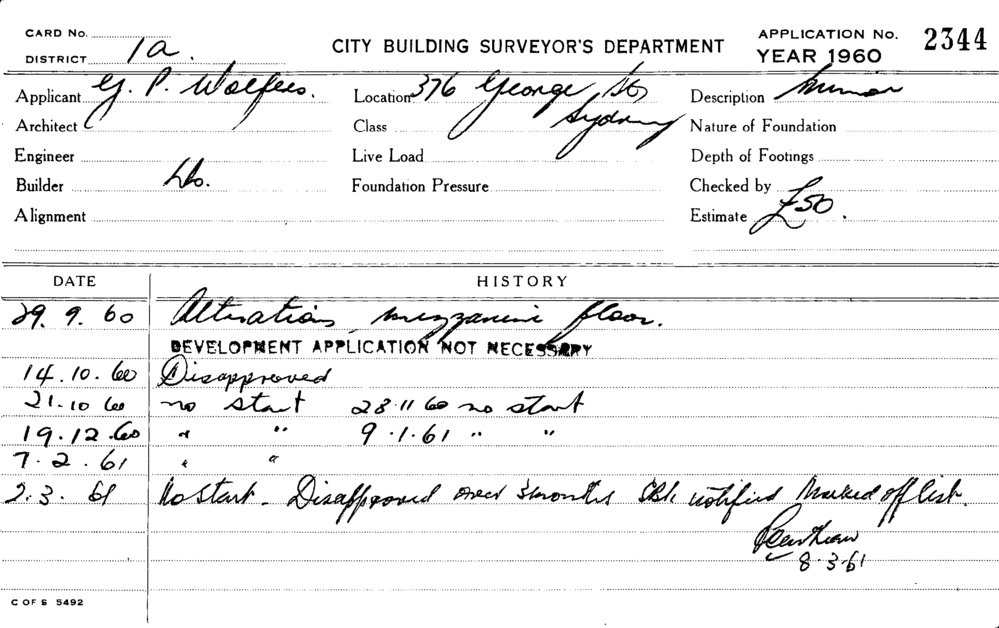 CARD No.
DISTRICT 1a
CITY BUILDING SURVEYOR'S DEPARTMENT
APPLICATION No. 2344
YEAR 1960
Applicant G. P. Wolfers.
Location 376 George St, Sydney
Description Minor
Architect
Class
Nature of Foundation
Engineer
Live Load
Depth of Footings
Builder Do.
Foundation Pressure
Checked by
Alignment
Estimate £50.
DATE HISTORY
29. 9. 60 Alterations mezzanine floor.
DEVELOPMENT APPLICATION NOT NECESSARY
14.10.60 Disapproved
21.10 60 no start 28.11 60 no start
19.12.60 " " 9.1.61 " "
7.2.61 " "
2.3.61 No Start - Disapproved over 3 months notified Marked off list.
8.3.61
C OF S 5492